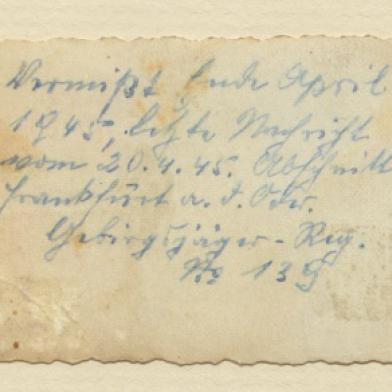 Vermißt Ende April
1945, letzte Nachricht
vom 20.4.45. Abschnitt
Frankfurt a. d. Oder.
Gebirgsjäger-Reg.
No 139